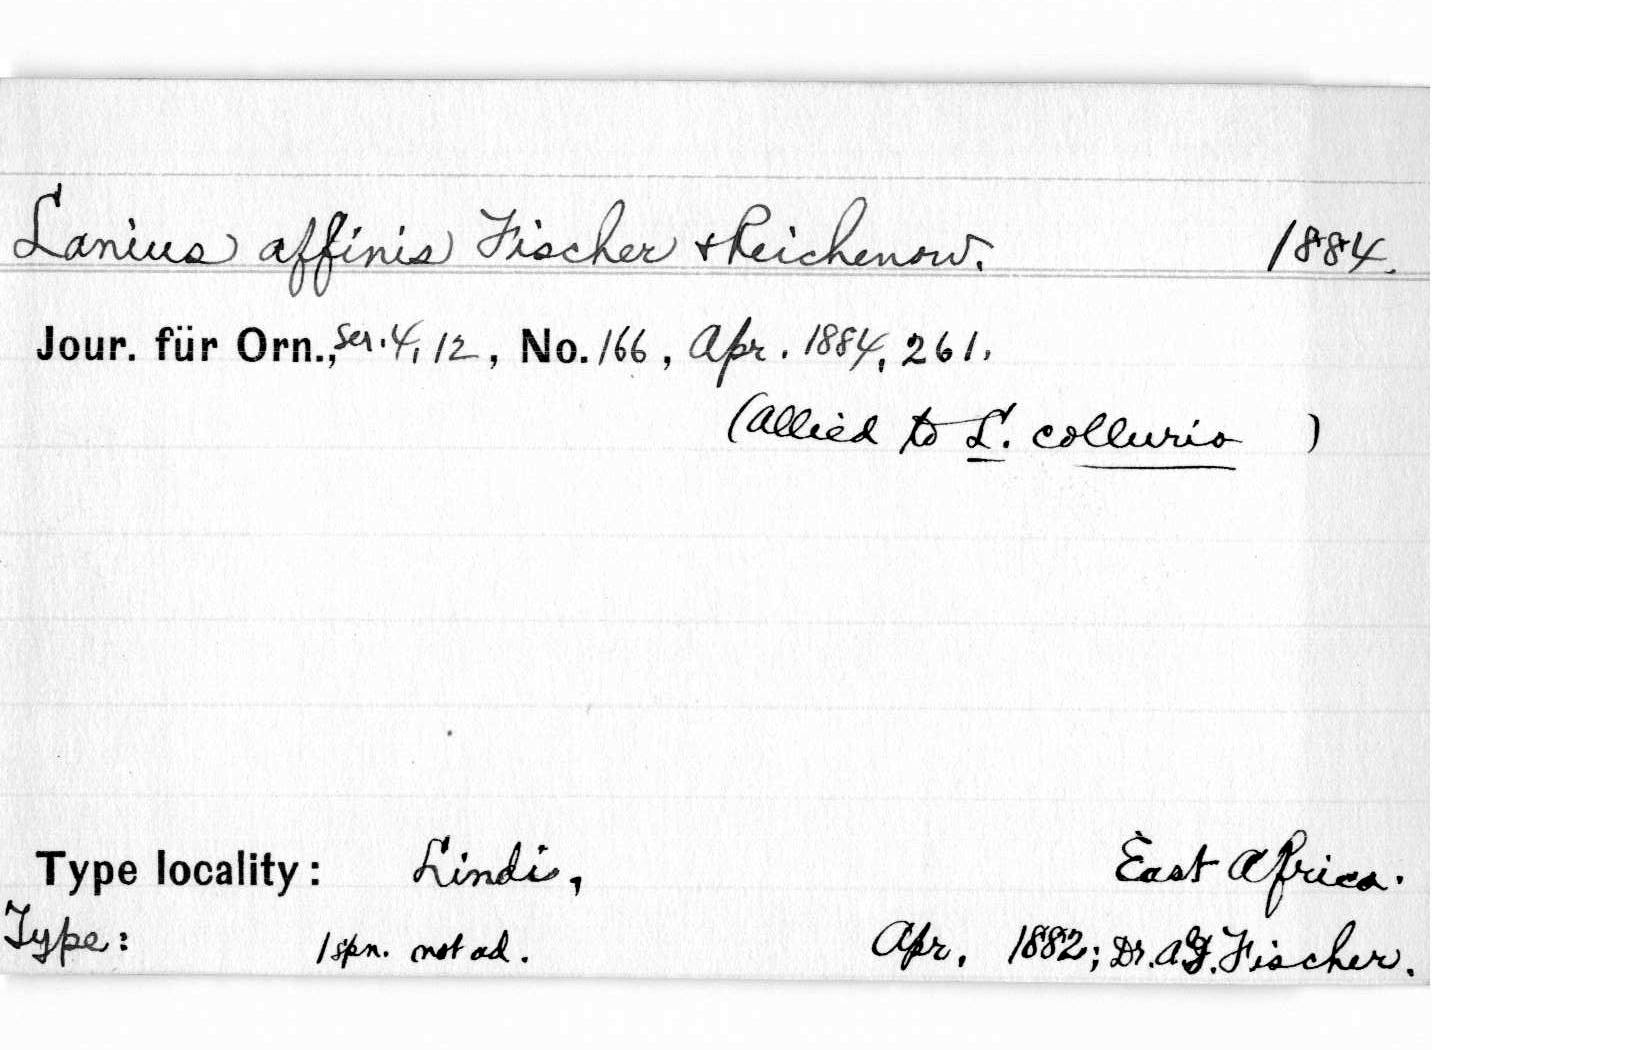 Lanius affinis Fischer & Reichenow. 1884.
Jour. für Orn., ser. 4, 12, No. 166, Apr. 1884, 261.
(Allied to L. collurio )
Type locality: Lindi, East Africa.
Type: 1 spn. not ad. Apr. 1882; Dr. A. Fischer.